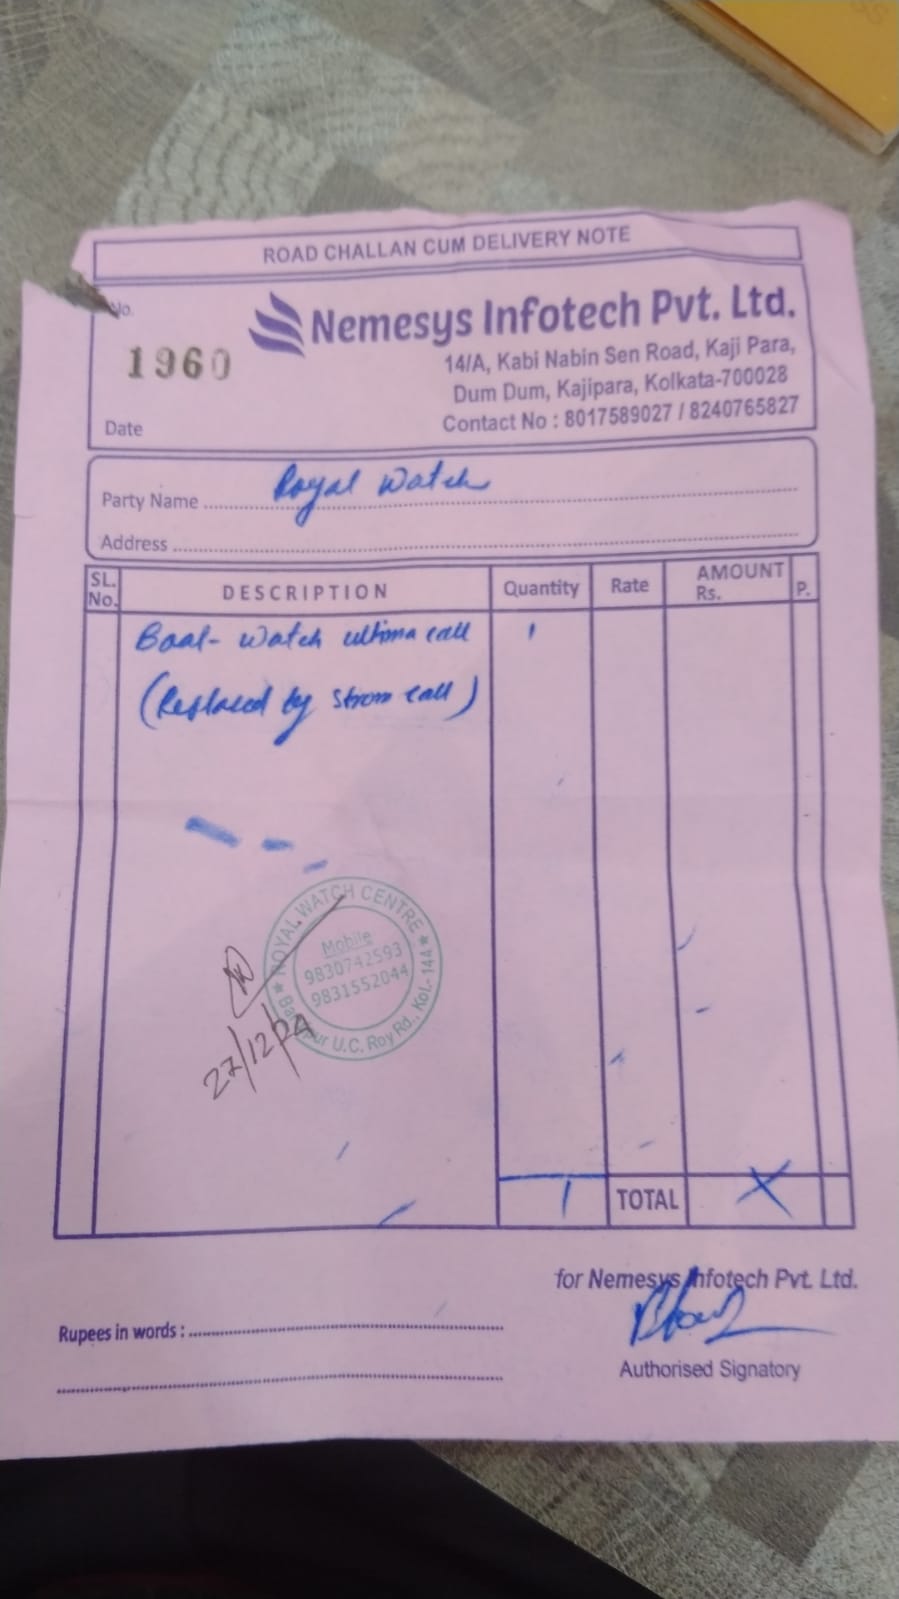 ROAD CHALLAN CUM DELIVERY NOTE
No.
1960
Nemesys Infotech Pvt. Ltd.
14/A, Kabi Nabin Sen Road, Kaji Para,
Dum Dum, Kajipara, Kolkata-700028
Contact No : 8017589027 / 8240765827
Date
Party Name Royal Watch
Address
SL. No. DESCRIPTION Quantity Rate AMOUNT Rs. P.
Boat- Watch ultima call 1
(Replaced by Strom call)
ROYAL WATCH CENTRE
Mobile
9830742593
9831552044
U.C. Roy Rd., Kol.- 144
27/12/24
1 TOTAL X
for Nemesys Infotech Pvt. Ltd.
Rupees in words :
Authorised Signatory